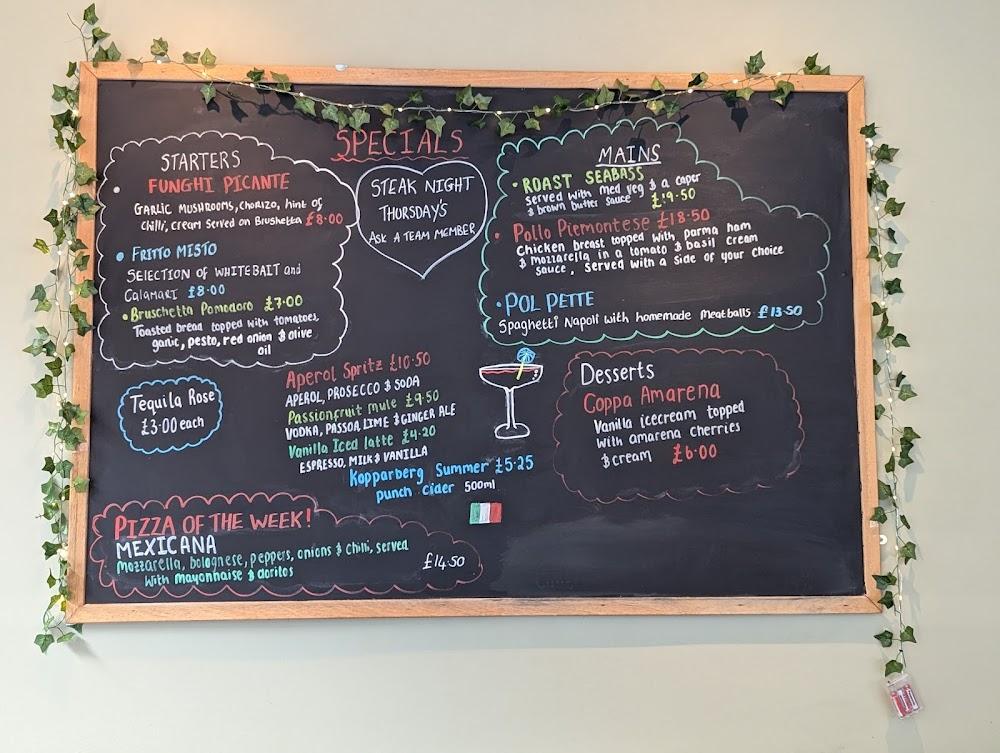 SPECIALS
STARTERS
FUNGHI PICANTE
GARLIC MUSHROOMS, CHORIZO, hint of
chilli, cream served on Brushetta £8.00
• FRITTO MISTO
SELECTION OF WHITEBAIT and
Calamari £8.00
• Bruschetta Pomodoro £7.00
Toasted bread topped with tomatoes,
garlic, pesto, red onion & olive
oil
STEAK NIGHT
THORSDAY'S
ASK A TEAM MEMBER
MAINS
• ROAST SEABASS
served with med veg & a caper
& brown butter sauce £19.50
• Pollo Piemontese £18.50
Chicken breast topped with parma ham
& mozzarella in a tomato & basil cream
sauce, served with a side of your choice
• POL PETTE
Spaghetti Napoli with homemade meatballs £13.50
Tequila Rose
£3.00 each
Aperol Spritz £10.50
APEROL, PROSECCO & SODA
Passionfruit mule £9.50
VODKA, PASSOA, LIME & GINGER ALE
Vanilla Iced latte £4.20
ESPRESSO, MILK & VANILLA
Kopparberg Summer £5.25
punch cider 500ml
Desserts
Coppa Amarena
Vanilla icecream topped
with amarena cherries
& cream £6.00
PIZZA OF THE WEEK!
MEXICANA
Mozzarella, bolognese, peppers, onions & chilli, served
with mayonnaise & doritos
£14.50